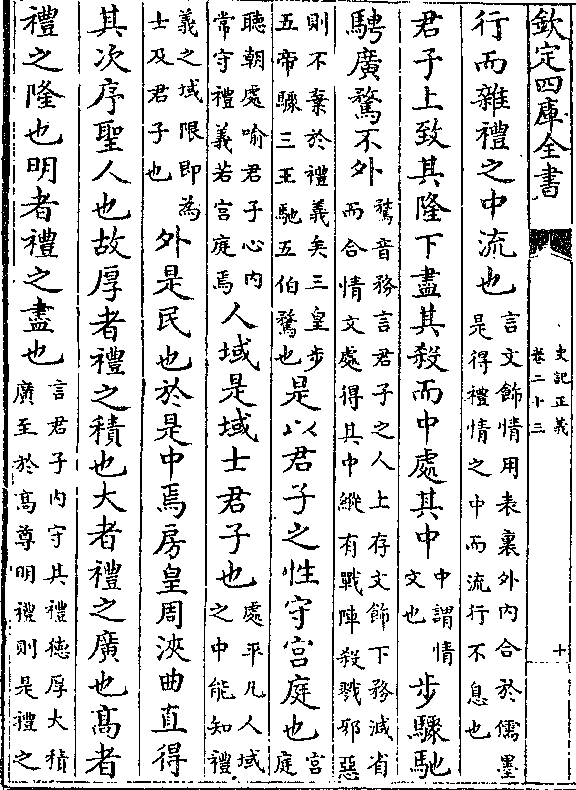 欽定四庫全書
史記正義
卷二十三
十
行而雜禮之中流也
言文飾情用表裏外内合於儒墨
是得禮情之中而流行不息也
君子上致其隆下盡其殺而中處其中
中謂情
文也
步驟馳
騁廣騖不外
騖音務言君子之人上存文飾下務減省
而合情文處得其中縱有戰陣殺戮邪惡
則不棄於禮義矣三皇步
五帝驟三王馳五伯騖也
是以君子之性守宫庭也
宫
庭
聽朝處喻君子心内
常守禮義若宫庭焉
人域是域士君子也
處平凡人域
之中能知禮
義之域限即為
士及君子也
外是民也於是中焉房皇周浹曲直得
其次序聖人也故厚者禮之積也大者禮之廣也髙者
禮之隆也明者禮之盡也
言君子内守其禮德厚大積
廣至於髙尊明禮則是禮之